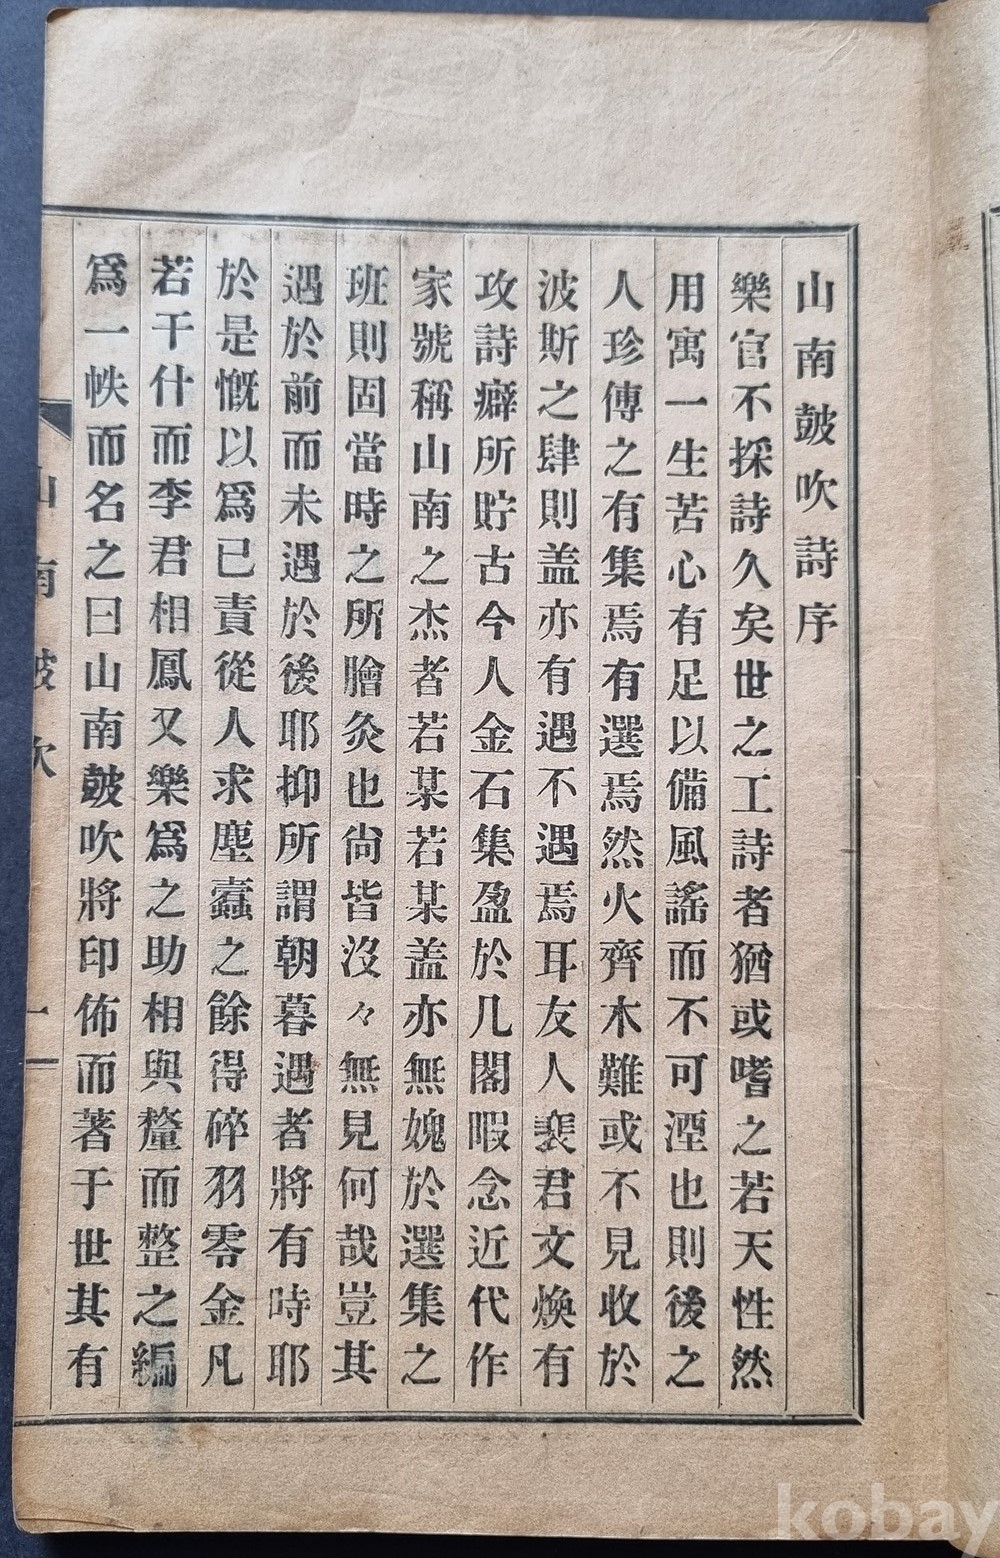 山南皷吹詩序
樂官不採詩久矣世之工詩者猶或嗜之若天性然
用寓一生苦心有足以備風謠而不可湮也則後之
人珍傳之有集焉有選焉然火齊木難或不見收於
波斯之肆則盖亦有遇不遇焉耳友人裴君文煥有
攻詩癖所貯古今人金石集盈於几閣暇念近代作
家號稱山南之杰者若某若某盖亦無媿於選集之
班則固當時之所膾灸也尙皆沒々無見何哉豈其
遇於前而未遇於後耶抑所謂朝暮遇者將有時耶
於是慨以爲已責從人求塵蠹之餘得碎羽零金凡
若干什而李君相鳳又樂爲之助相與釐而整之編
爲一帙而名之曰山南皷吹將印佈而著于世其有
山南皷吹 一
kobay